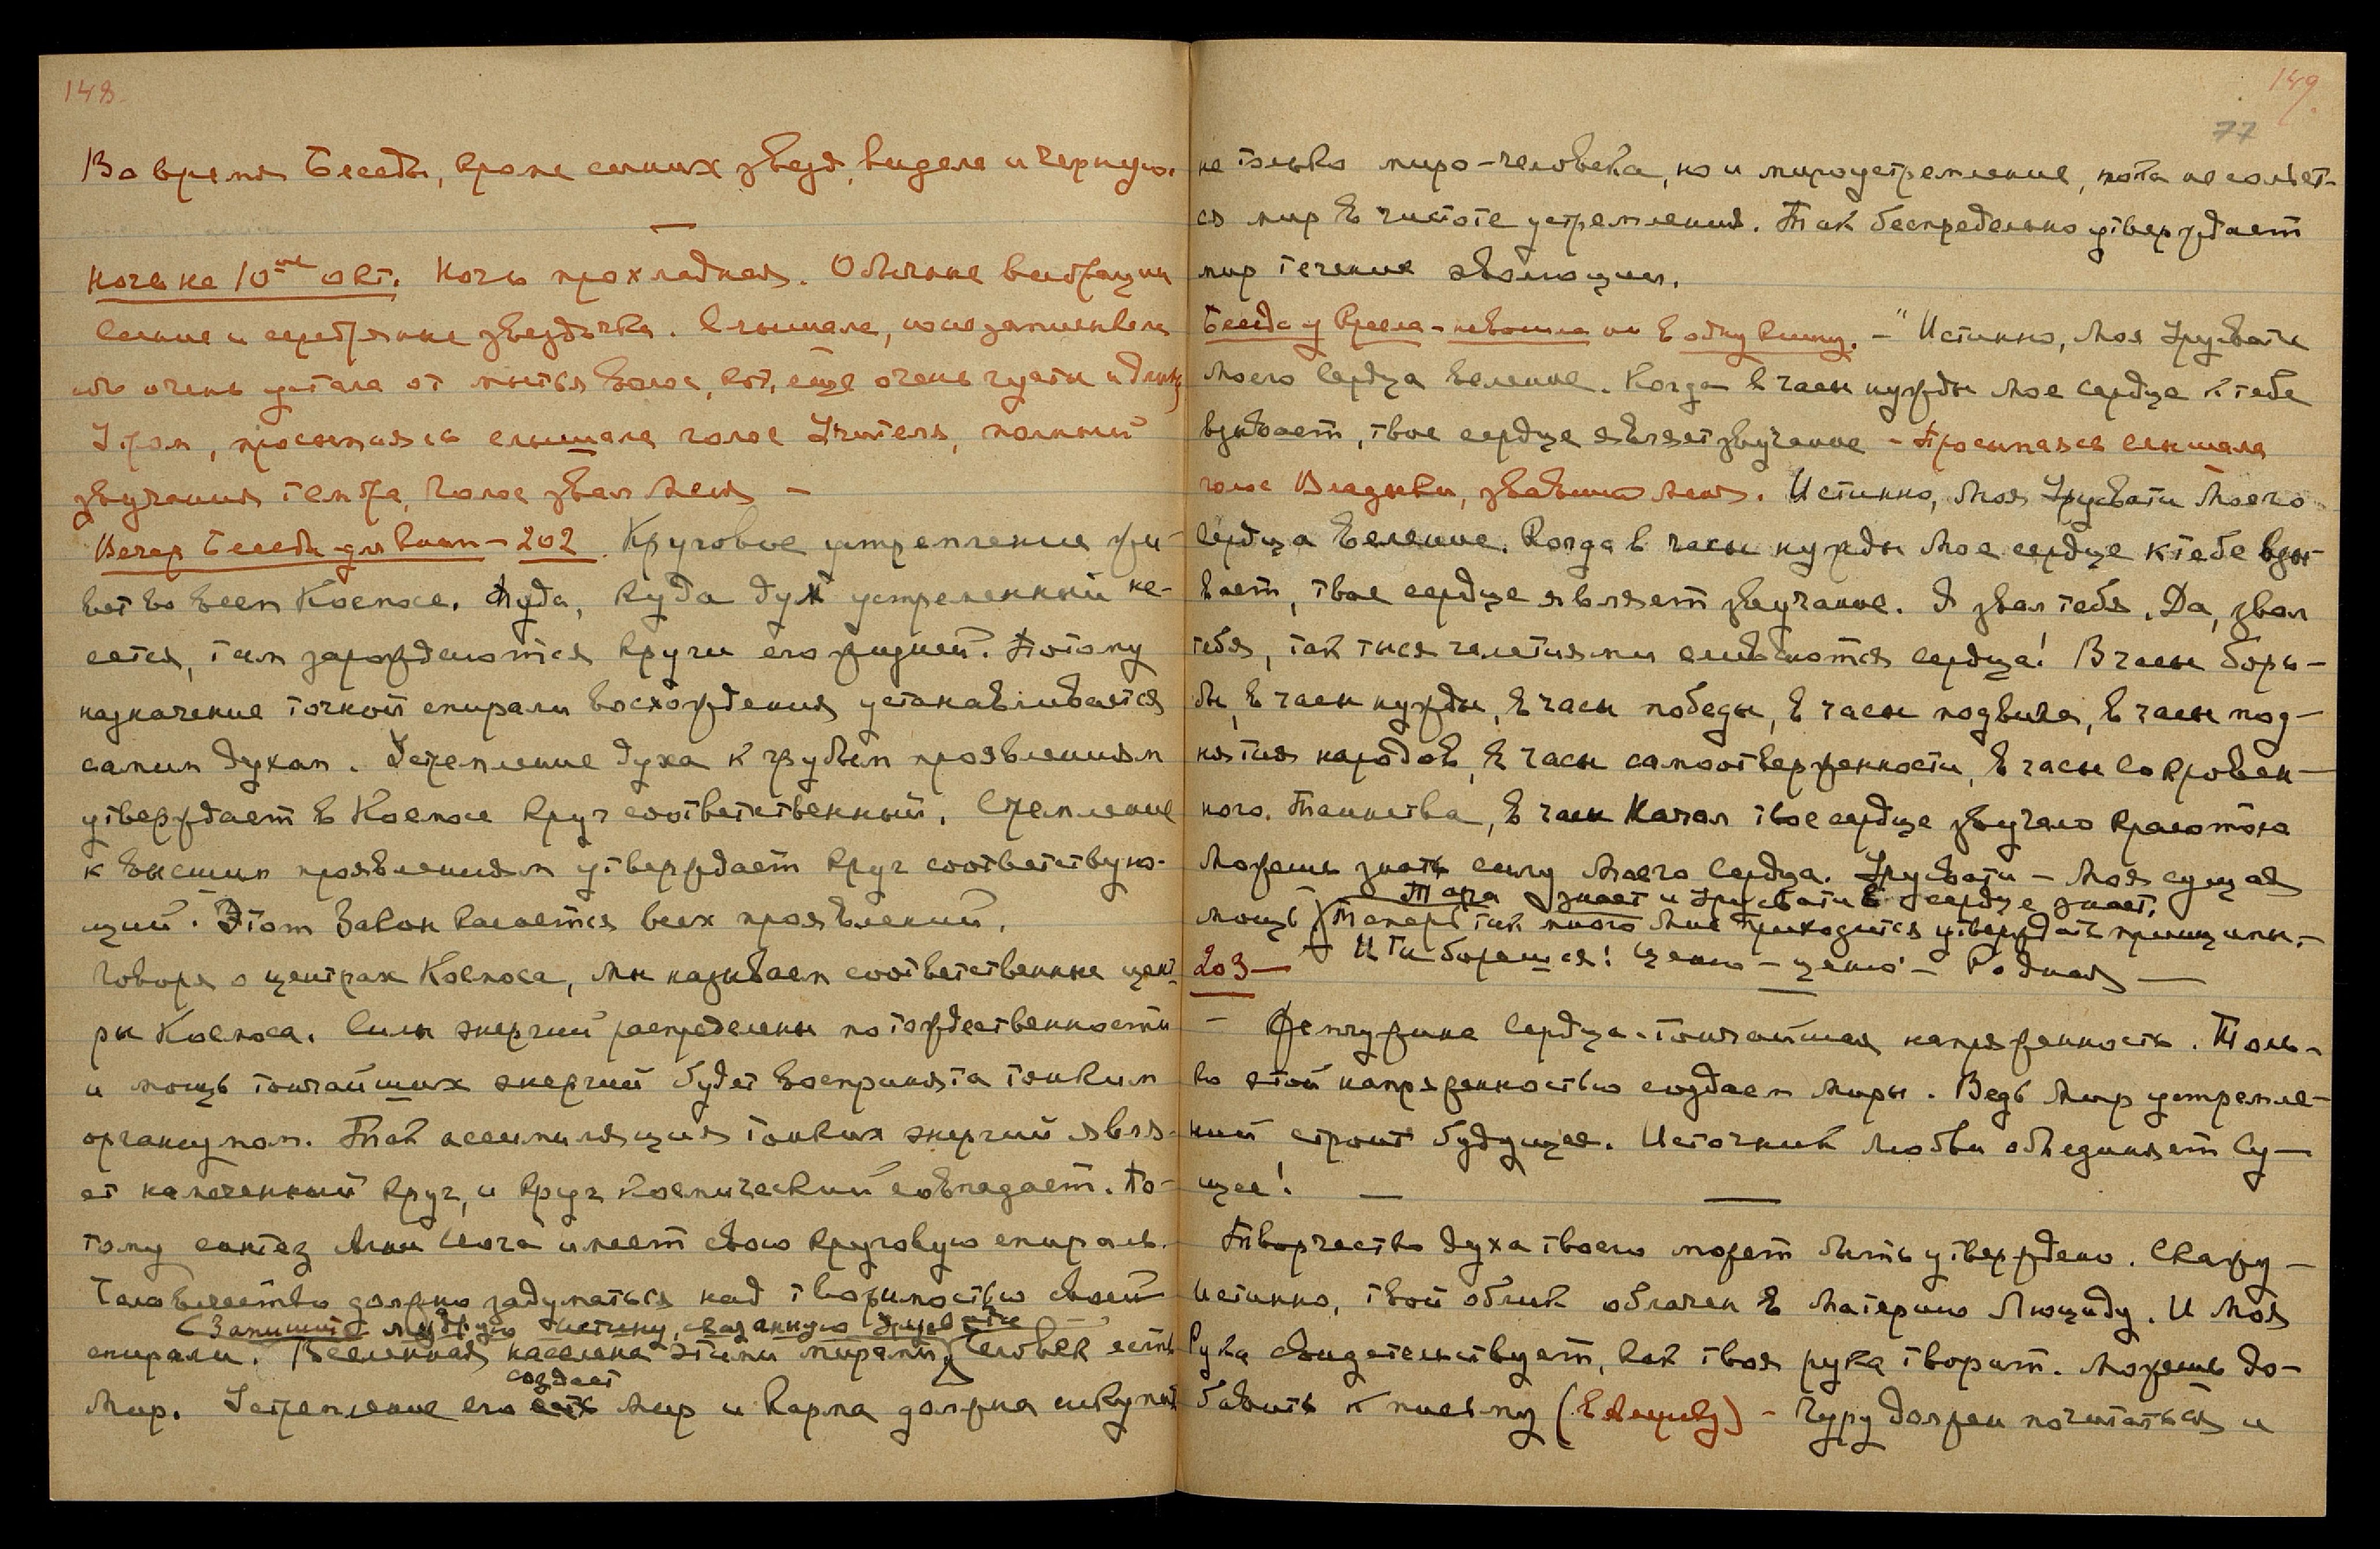 148.
Во время Беседы, кроме синих звезд, видела и черную.
Ночь на 10ое окт. Ночь прохладная. Обычные вибрации
синие и серебряные звездочки. Слышала, но не записала
ибо очень устала от мытья волос, кот. еще очень густы и длинны
Утром, просыпаясь слышала голос Учителя, полный
звучания тембра, голос звал меня —
Вечер Беседа для книги — 202. Круговое устремление жи-
вет во всем Космосе. Туда, куда дух устремленный не-
сется, там зарождаются круги его жизней. Потому
назначение точкой спирали восхождения устанавливается
самим духом. Устремление духа к грубым проявлениям
утверждает в Космосе круг соответственный. Стремление
к высшим проявлениям утверждает круг соответствую-
щий. Этот Закон касается всех проявлений.
Говоря о центрах Космоса, мы называем соответственные цент-
ры Космоса. Силы энергий распределены по тождественности
и мощь тончайших энергий будет воспринята тонким
организмом. Так ассимиляция тонких энергий явля-
ет намеченный круг, и круг космический совпадает. По-
тому синтез Агни Йога имеет свою круговую спираль.
Человечество должно задуматься над творимостью своей
(Запишите мудрую истину, сказанную Урусвати —
спирали. Вселенная населена этими мирами) Человек есть
создает
Мир. Устремление его есть мир и карма должна искупить
149.
77
не только миро-человека, но и мироустремление, пока не сольет-
ся мир в чистоте устремления. Так беспредельно утверждает
мир течение эволюции.
Беседа у кресла — не вошла ни в одну книгу. — "Истинно, Моя Урусвати
Моего Сердца веление. Когда в часы нужды Мое сердце к тебе
взывает, твое сердце являет звучание — Просыпаясь слышала
голос Владыки, звавший меня. Истинно, Моя Урусвати Моего
Сердца веление. Когда в часы нужды Мое сердце к тебе взы-
вает, твое сердце являет звучание. Я звал тебя. Да, звал
тебя, так тысячелетиями сливаются сердца! В часы борь-
бы, в часы нужды, в часы победы, в часы подвига, в часы под-
нятия народов, в часы самоотверженности, в часы Сокровен-
ного Таинства, в часы Начал твое сердце звучало красотою
Можешь знать силу Моего Сердца. Урусвати — Моя сущая
Тара знает и Урусвати сердце знает.
мощь) Теперь так много Мне приходится утверждать принципы. —
203 — И ты борешься! Ценно — ценно — Родная —
— Жемчужина Сердца — тончайшая напряженность. Толь-
ко этой напряженностью создаем миры. Ведь мир устремле-
ний строит будущее. Источник Любви объединяет Су-
щее! —
Творчество духа твоего может быть утверждено. Скажу —
Истинно, твой облик облачен в Материю Люциду. И Моя
Рука свидетельствует, как твоя рука творит. Можешь до-
бавить к письму — Гуру должен почитаться и